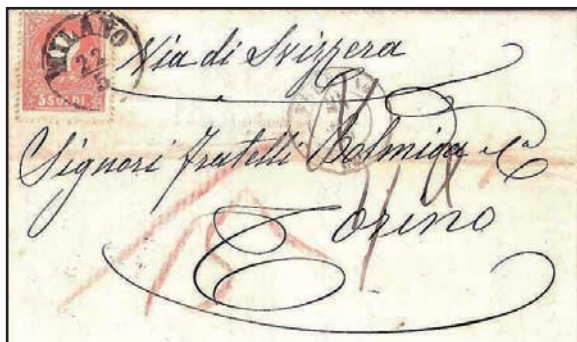 MILANO
22
5 SOLDI
Via di Svizzera
Signori fratelli Colmiga e Cª
Torino